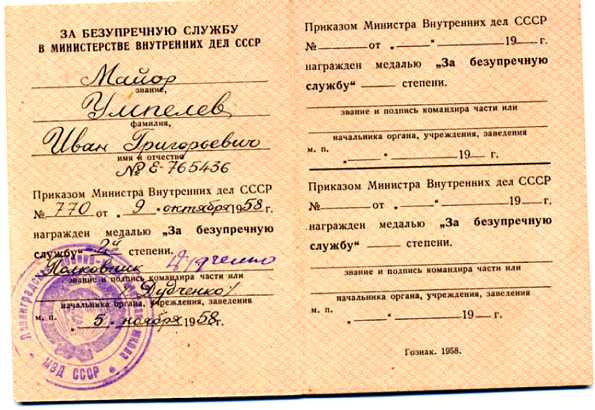 ЗА БЕЗУПРЕЧНУЮ СЛУЖБУ
В МИНИСТЕРСТВЕ ВНУТРЕННИХ ДЕЛ СССР
Майор
звание,
Умпелев
фамилия,
Иван Григорьевич
имя и отчество
№ Е-765436
Приказом Министра Внутренних дел СССР
№ 770 от "9" октября 1958 г.
награжден медалью „За безупречную
службу" 2й степени.
Полковник
звание и подпись командира части или
/Дубченко/
начальника органа, учреждения, заведения
м. п. 5 ноября 1958 г.
МВД СССР
Приказом Министра Внутренних дел СССР
№ от " " 19 г.
награжден медалью „За безупречную
службу" степени.
звание и подпись командира части или
начальника органа, учреждения, заведения
м. п. " " 19 г.
Приказом Министра Внутренних дел СССР
№ от " " 19 г.
награжден медалью „За безупречную
службу" степени.
звание и подпись командира части или
начальника органа, учреждения, заведения
м. п. " " 19 г.
Гознак. 1958.